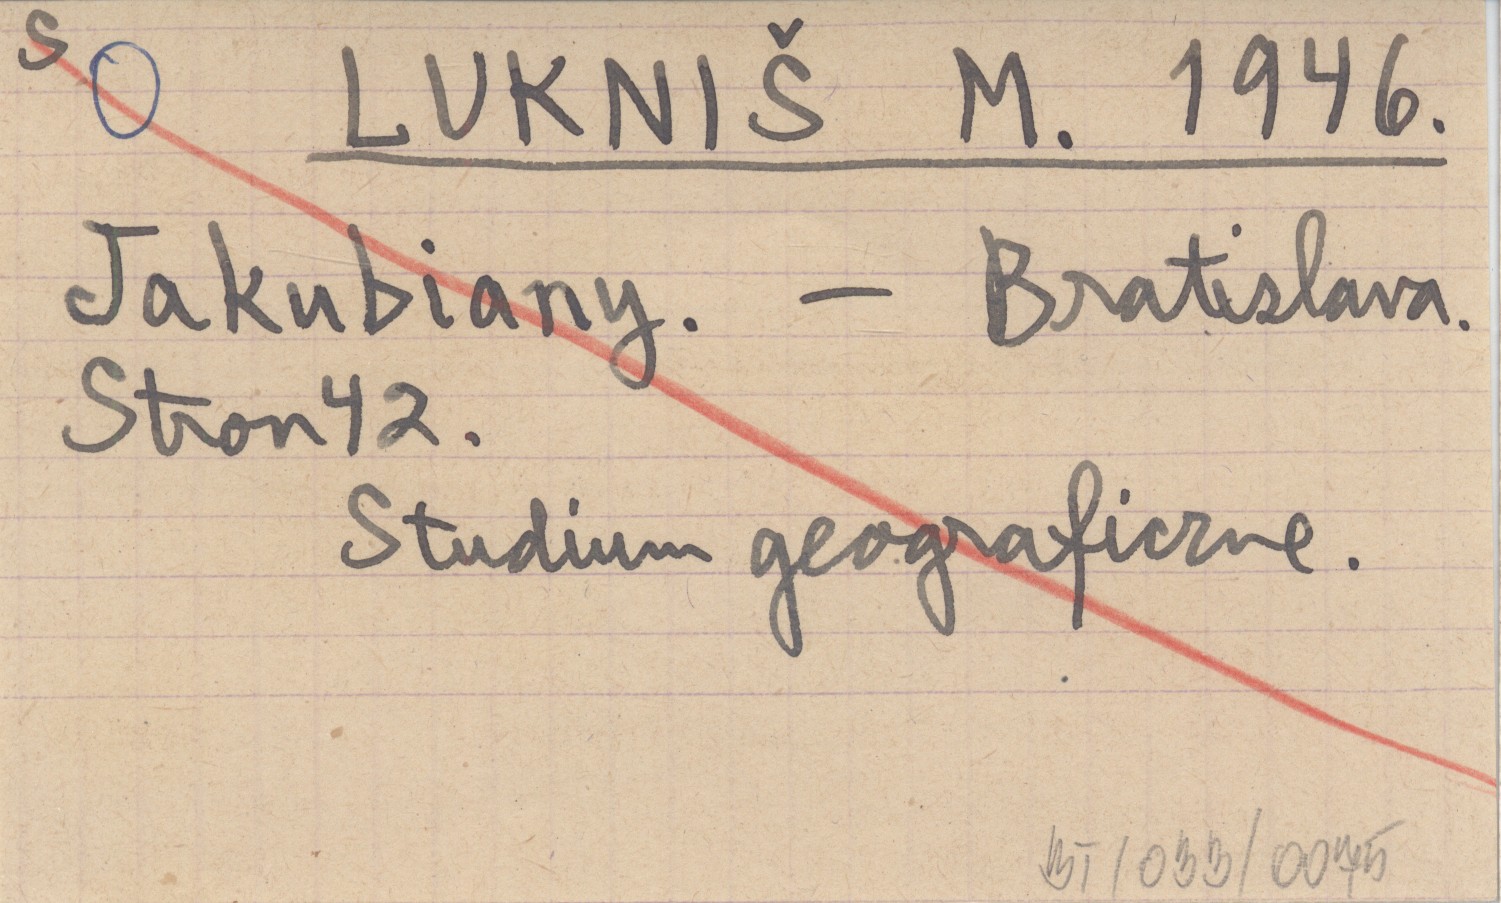 S
LUKNIŠ M. 1946.
Jakubiany. — Bratislava.
Stron 42.
Studium geograficzne.
BT/033/0075